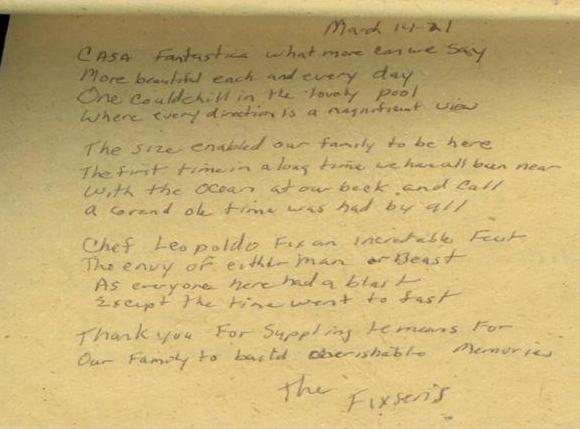 March 14-21
CASA Fantastica what more can we Say
More beautiful each and every day
One could chill in the lovely pool
Where every direction is a magnificent view
The size enabled our family to be here
The first time in a long time we have all been near
With the Ocean at our beck and Call
A Grand ole time was had by all
Chef Leopoldo Fix an incredable Feast
The envy of either man or Beast
As everyone here had a blast
Except the time went to fast
Thank you For Suppling te means For
Our Family to build cherishable Memories
The Fixsen's